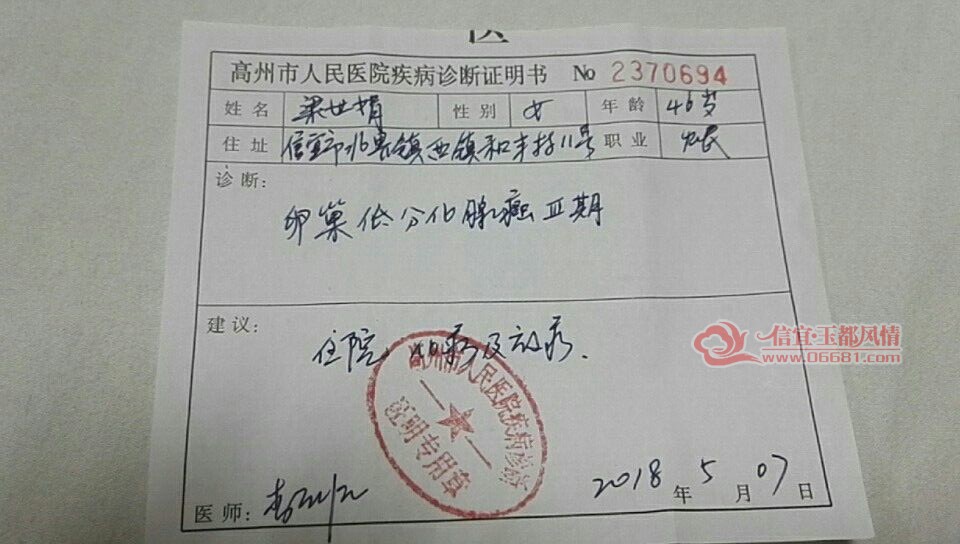 高州市人民医院疾病诊断证明书 No 2370694
姓名 梁世娟 性别 女 年龄 46岁
住址 信宜市北界镇西镇和丰村11号 职业 农民
诊断:
卵巢低分化腺癌Ⅲ期
建议:
住院、化疗及放疗.
高州市人民医院疾病诊断
证明专用章
信宜·玉都风情
www.06681.com
医师:
2018年5月07日